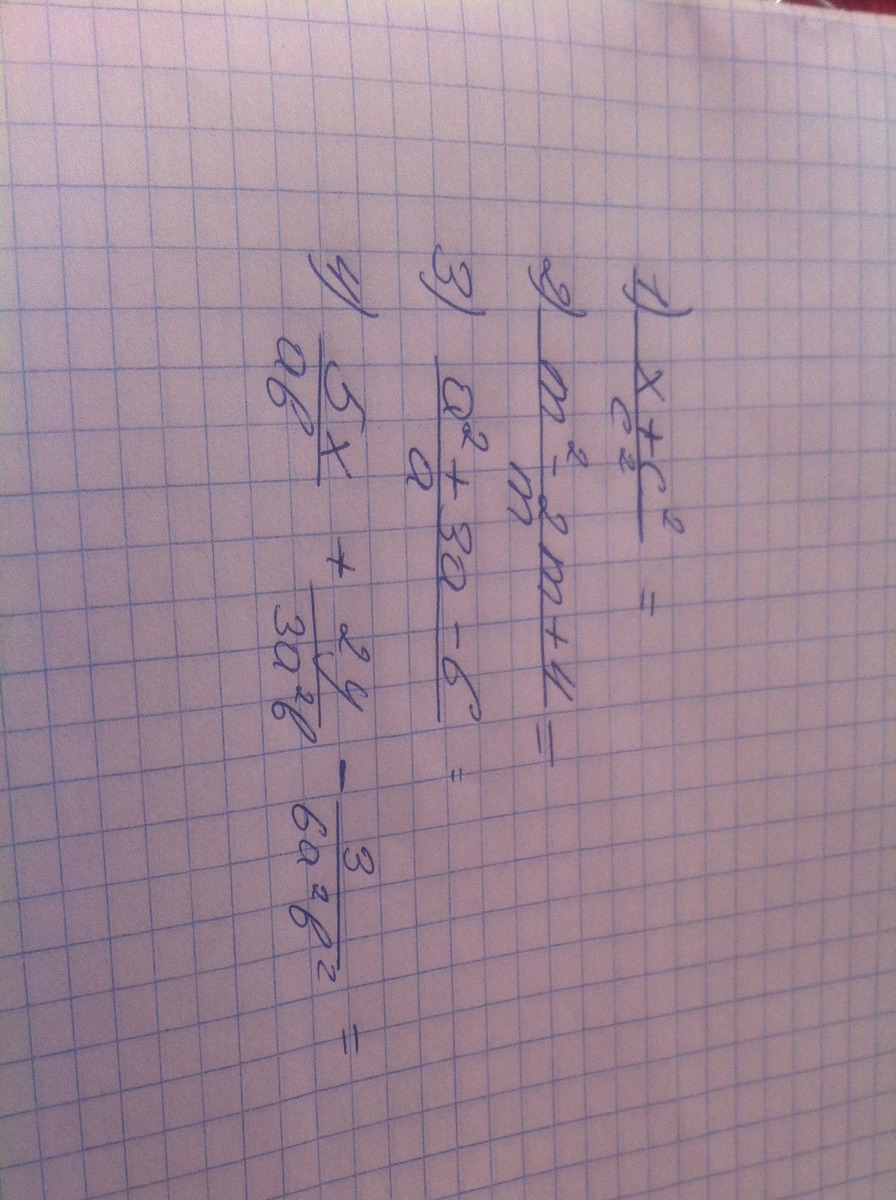 1) (x+c²)/c² =
2) (m²-2m+4)/m =
3) (a²+3a-6)/a =
4) 5x/(ab) + 2y/(3a²b) - 3/(6a²b²) =